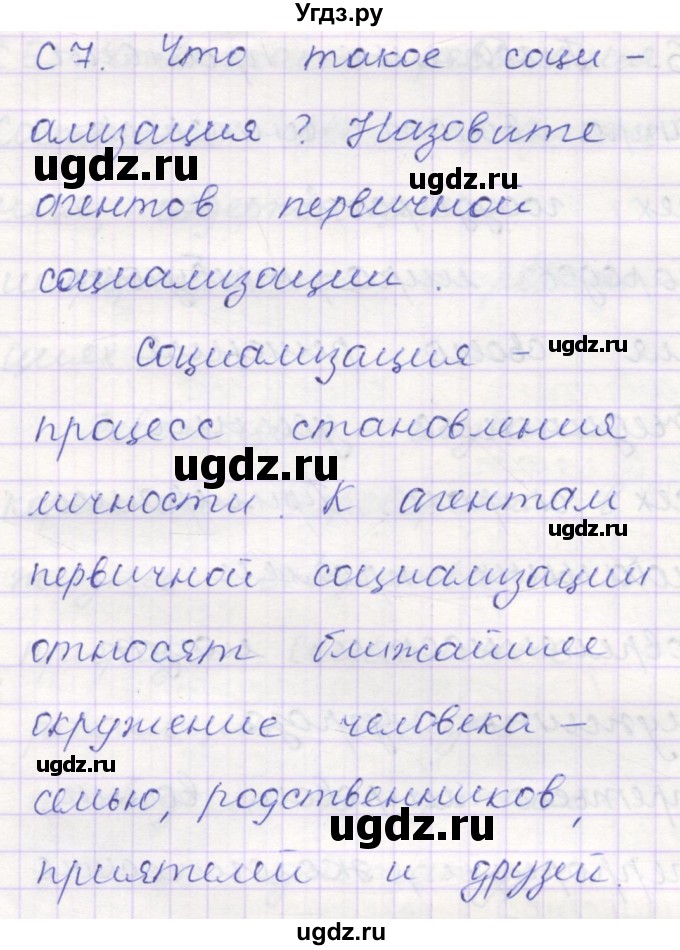 Угдз.ру
С7. Что такое соци-
ализация? Назовите
ugdz.ru
ugdz.ru
агентов первичной
социализации.
Социализация -
ugdz.ru
процесс становления
ugdz.ru
личности. К агентам
ugdz.ru
первичной социализации
относят ближайшее
окружение человека -
ugdz.ru
семью, родственников,
ugdz.ru
приятелей и друзей.
ugdz.ru